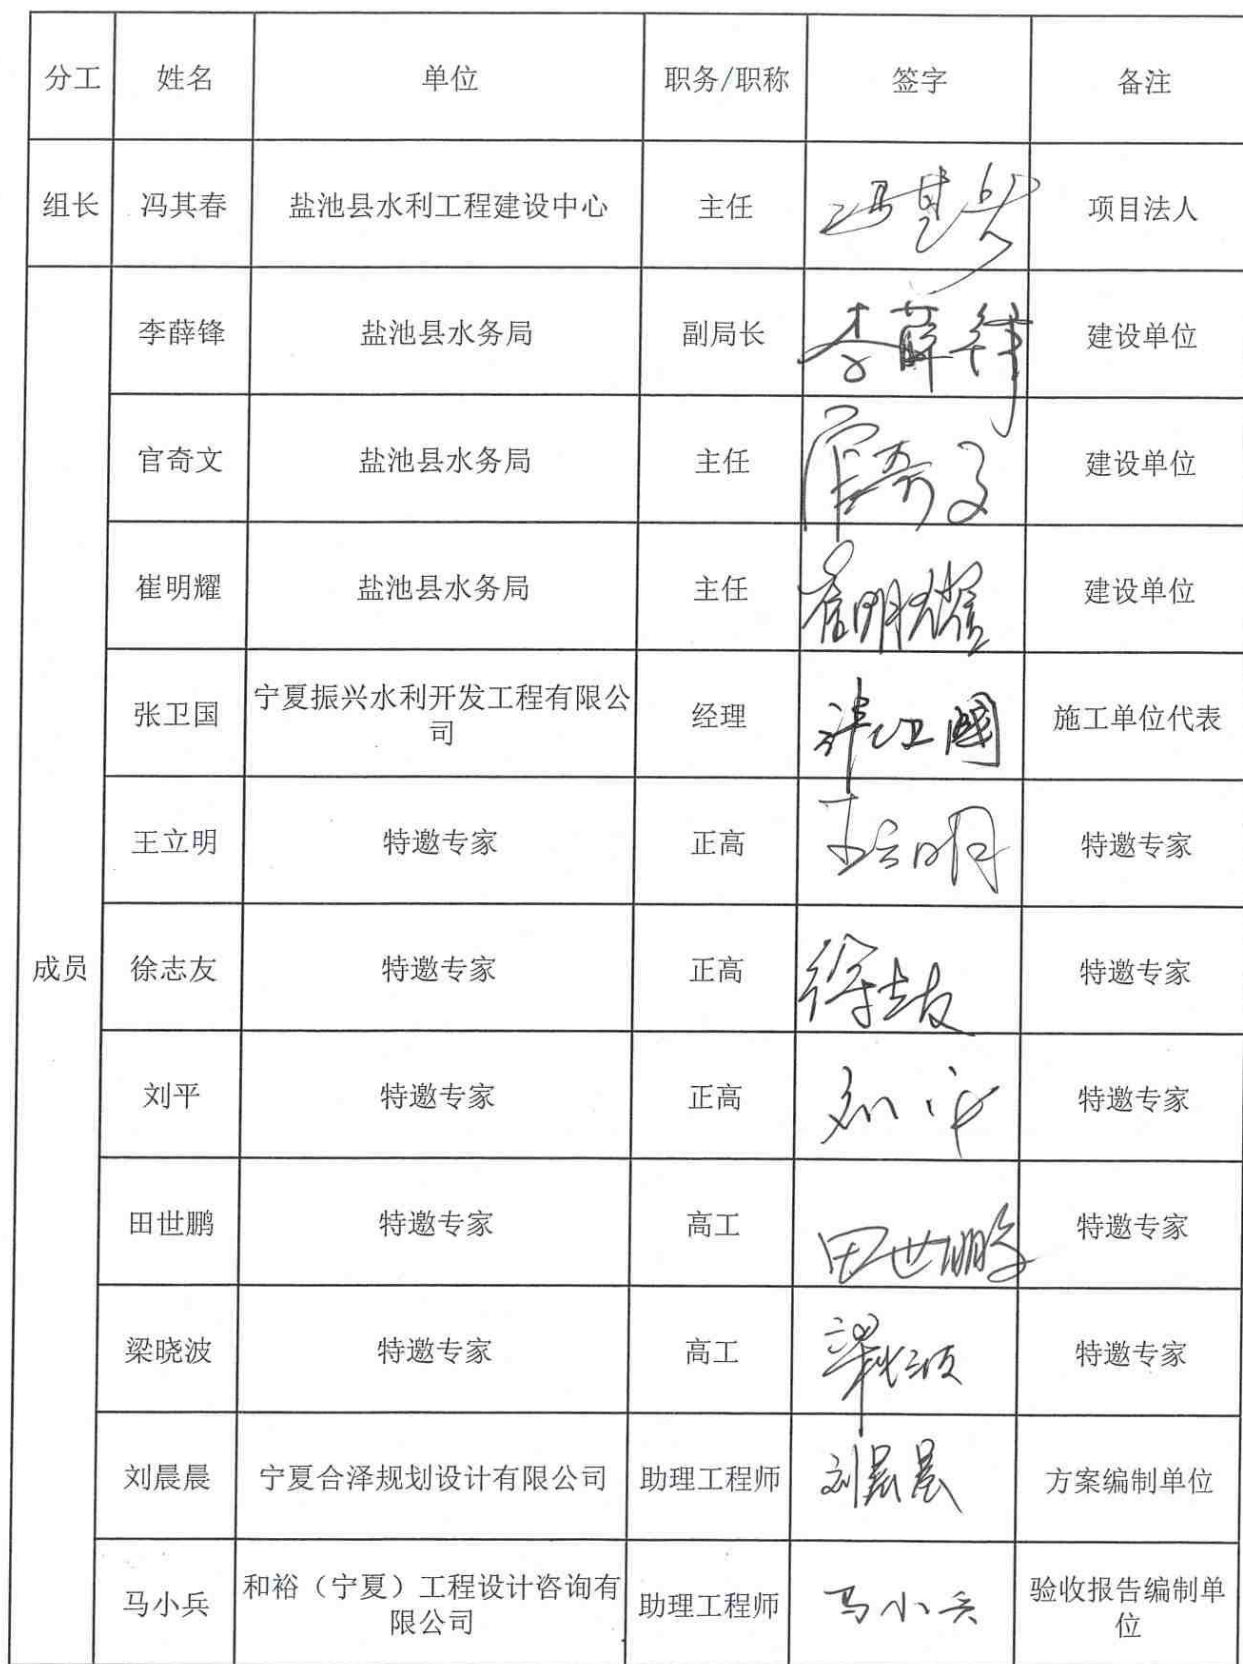 分工 姓名 单位 职务/职称 签字 备注
组长 冯其春 盐池县水利工程建设中心 主任 冯其春 项目法人
李薛锋 盐池县水务局 副局长 李薛锋 建设单位
官奇文 盐池县水务局 主任 官奇文 建设单位
崔明耀 盐池县水务局 主任 崔明耀 建设单位
宁夏振兴水利开发工程有限公
张卫国 司 经理 张卫國 施工单位代表
王立明 特邀专家 正高 王立明 特邀专家
成员 徐志友 特邀专家 正高 徐志友 特邀专家
刘平 特邀专家 正高 刘平 特邀专家
田世鹏 特邀专家 高工 田世鹏 特邀专家
梁晓波 特邀专家 高工 梁晓波 特邀专家
刘晨晨 宁夏合泽规划设计有限公司 助理工程师 刘晨晨 方案编制单位
和裕（宁夏）工程设计咨询有 验收报告编制单
马小兵 限公司 助理工程师 马小兵 位